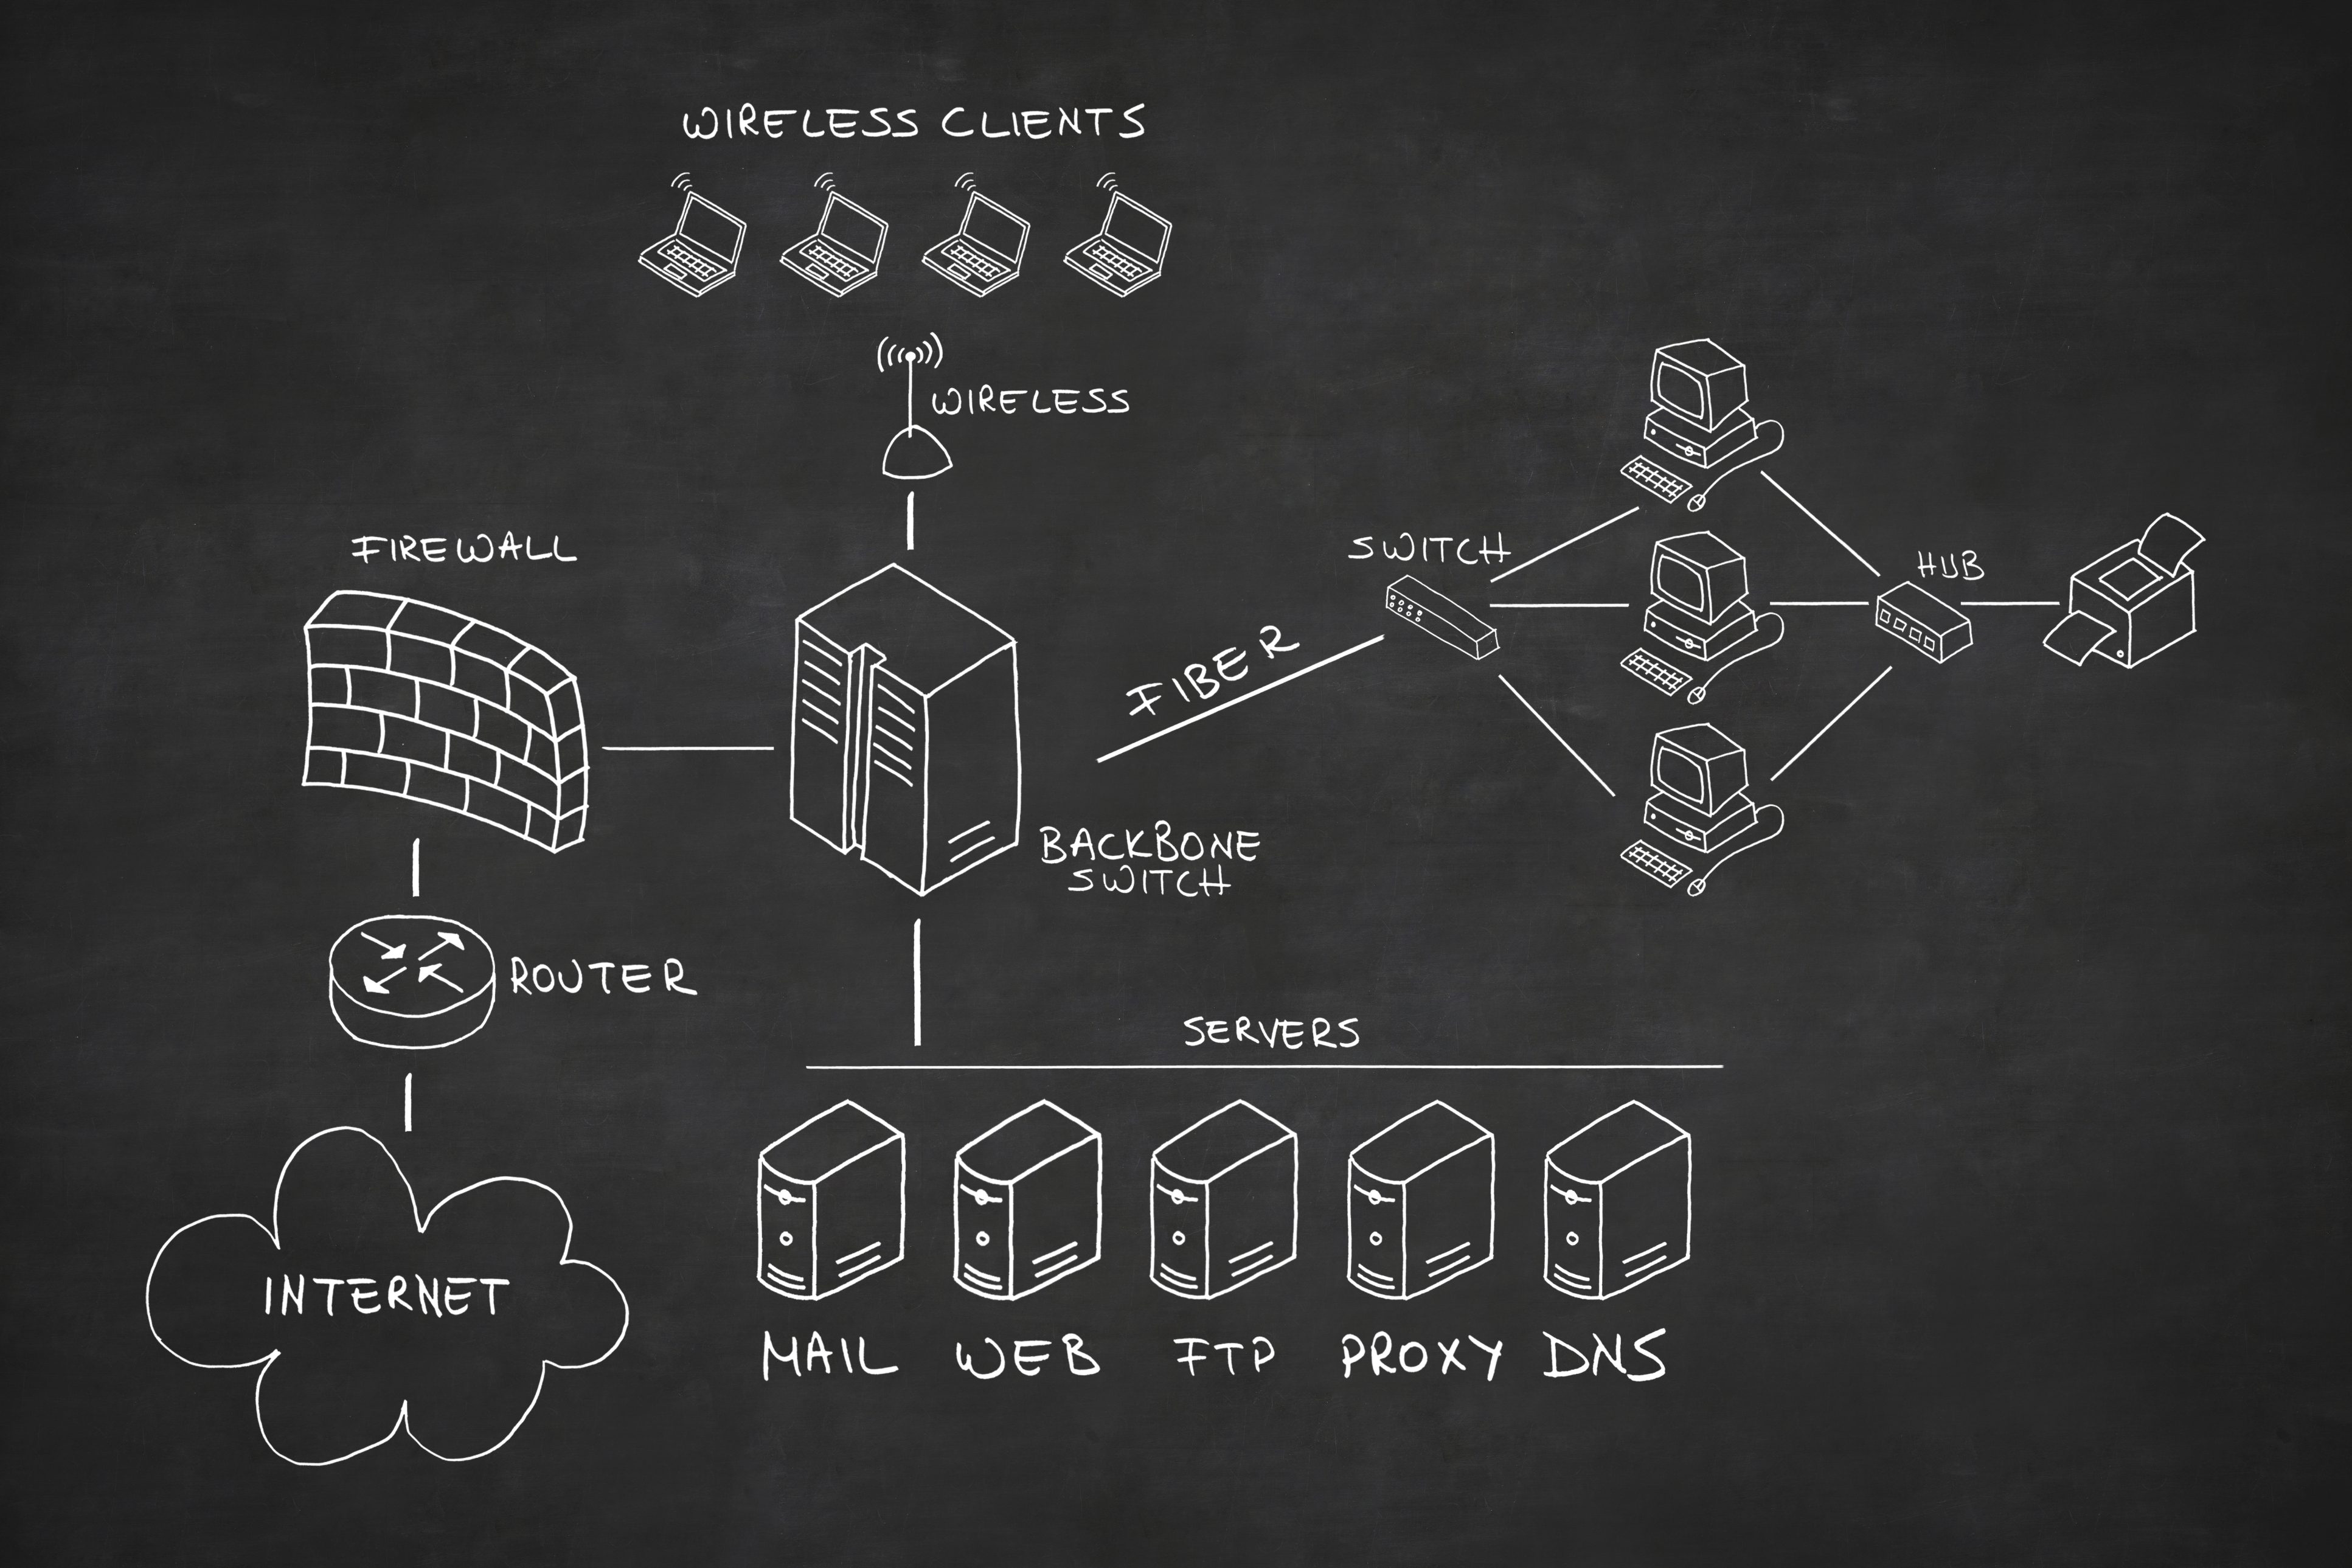 WIRELESS CLIENTS
WIRELESS
FIREWALL
SWITCH
HUB
FIBER
BACKBONE
SWITCH
ROUTER
SERVERS
INTERNET
MAIL
WEB
FTP
PROXY
DNS